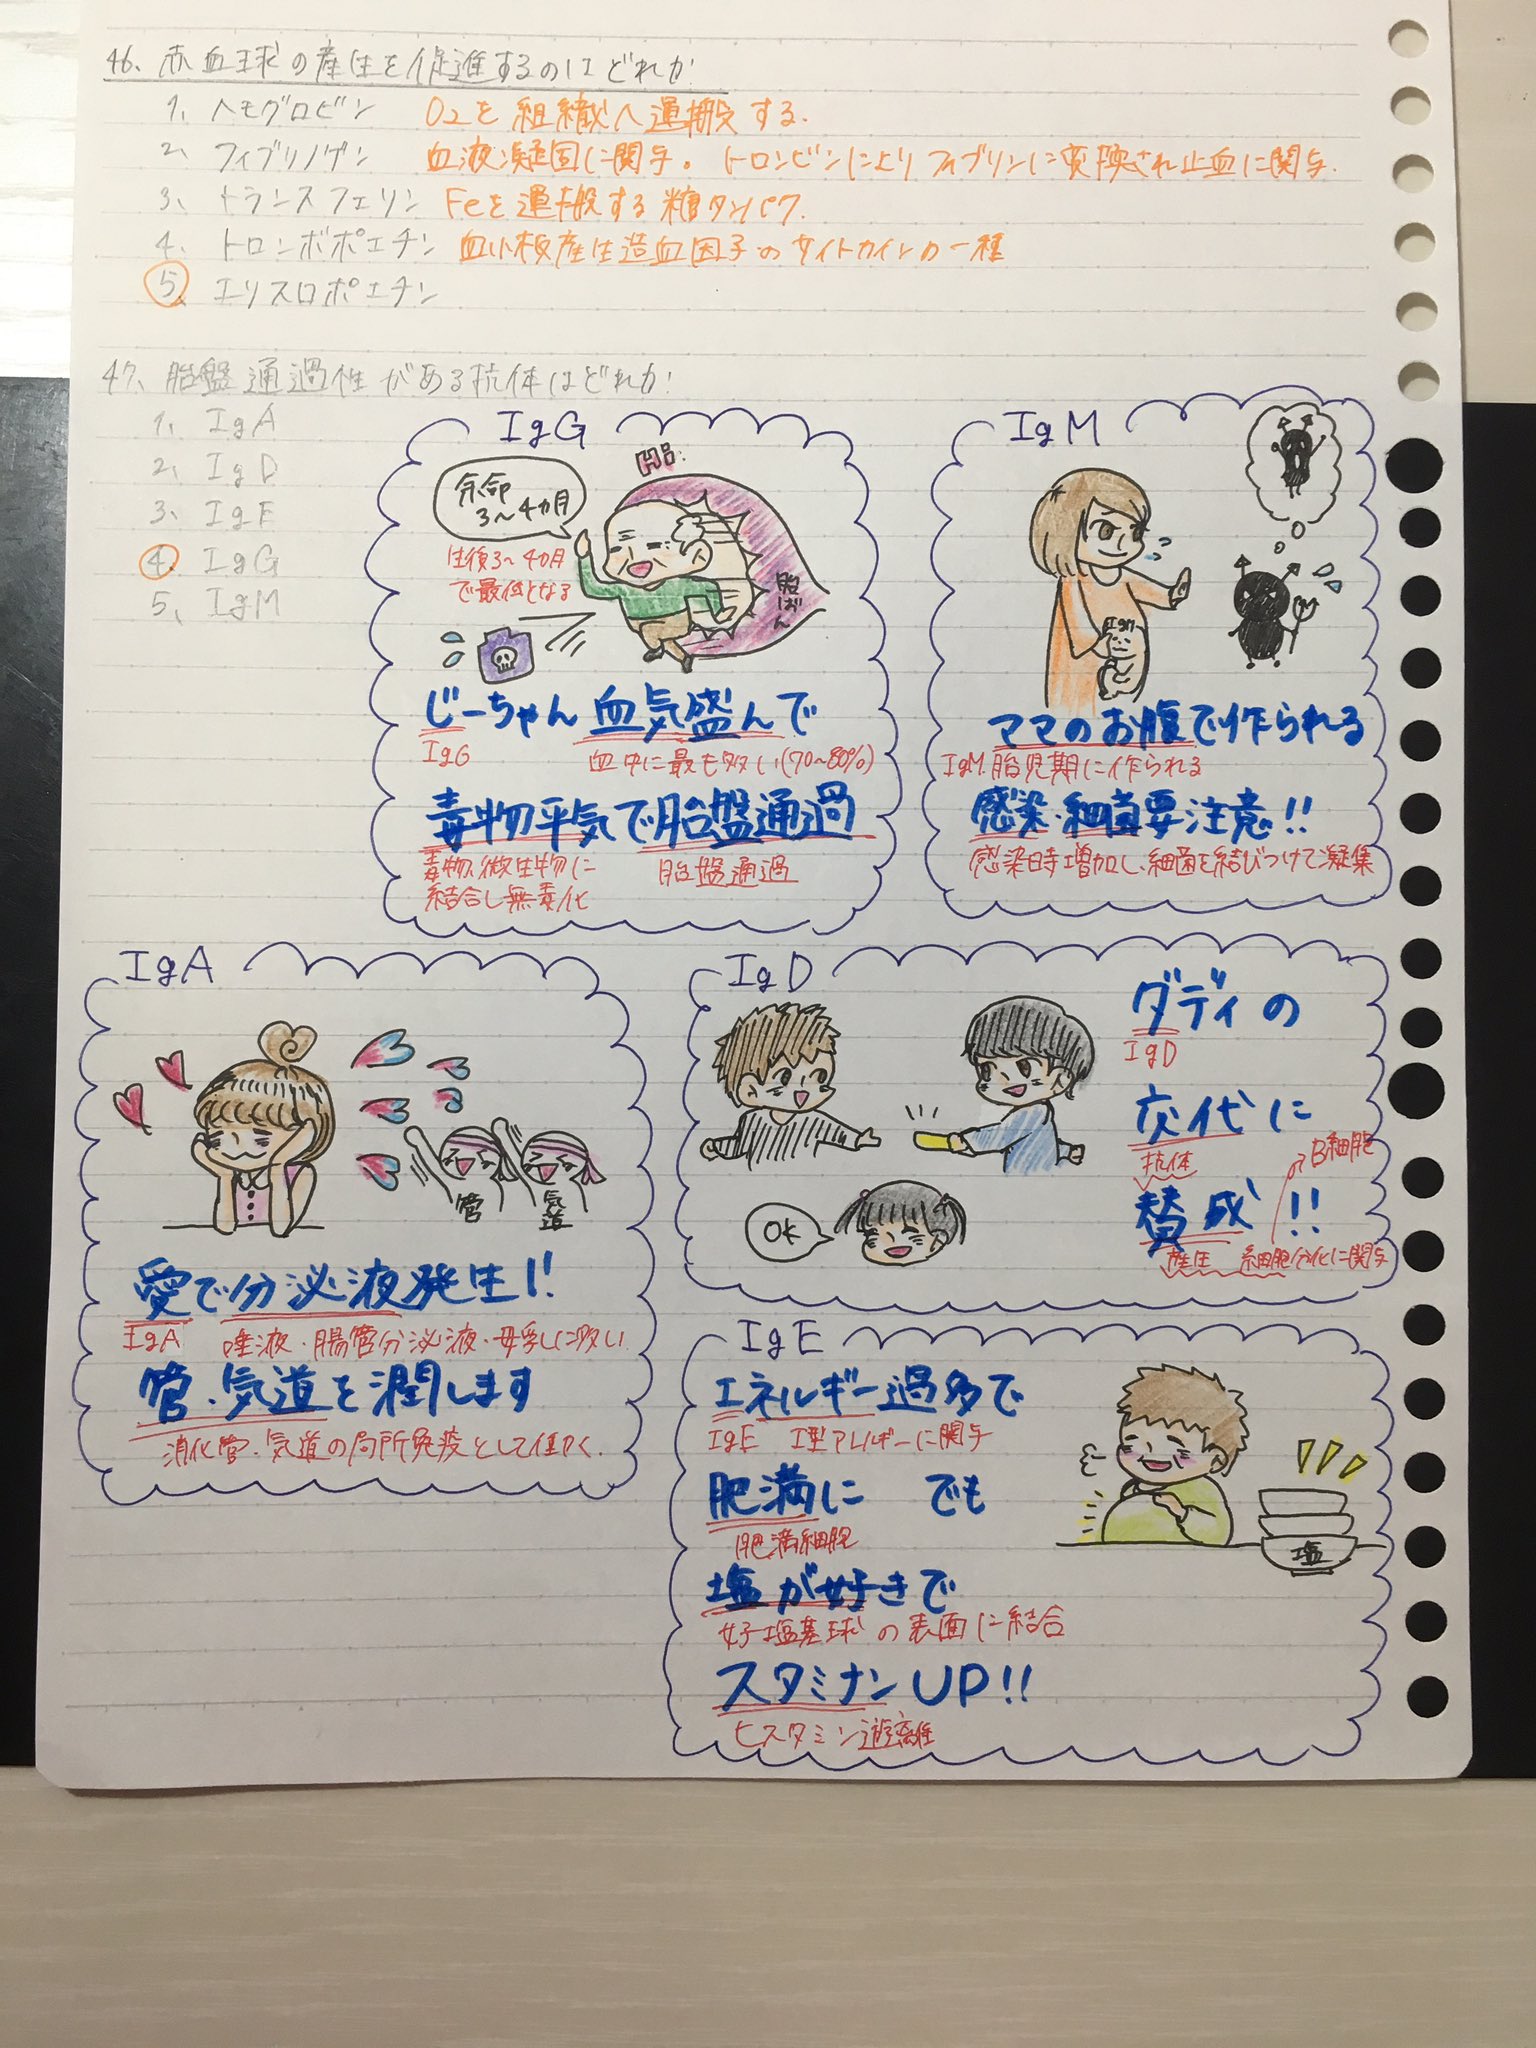 46、赤血球の産生を促進するのはどれか
1、ヘモグロビン O2を組織へ運搬する。
2、フィブリノゲン 血液凝固に関与。トロンビンによりフィブリンに変換され止血に関与.
3、トランスフェリン Feを運搬する糖タンパク.
4、トロンボポエチン 血小板産生造血因子のサイトカインの一種
5、エリスロポエチン
47、胎盤通過性がある抗体はどれか
1、IgA
2、IgD
3、IgE
4、IgG
5、IgM
IgG
余命
3〜4カ月
生後3〜4カ月
で最低となる
胎ばん
じーちゃん血気盛んで
IgG 血中に最も多い(70〜80%)
毒物平気で胎盤通過
毒物、微生物に
結合し無毒化
胎盤通過
IgM
IgM
ママのお腹で作られる
IgM 胎児期に作られる
感染・細菌要注意!!
感染時増加し、細菌を結びつけて凝集
IgA
管
気道
愛で分泌液発生!!
IgA 唾液・腸管分泌液・母乳に多い
管・気道を潤します
消化管・気道の局所免疫として働く.
IgD
OK
ダディの
IgD
交代に
抗体
B細胞
賛成!!
産生 細胞分化に関与
IgE
エネルギー過多で
IgE I型アレルギーに関与
肥満に でも
肥満細胞
塩が好きで
好塩基球の表面に結合
スタミナンUP!!
ヒスタミン遊離
塩